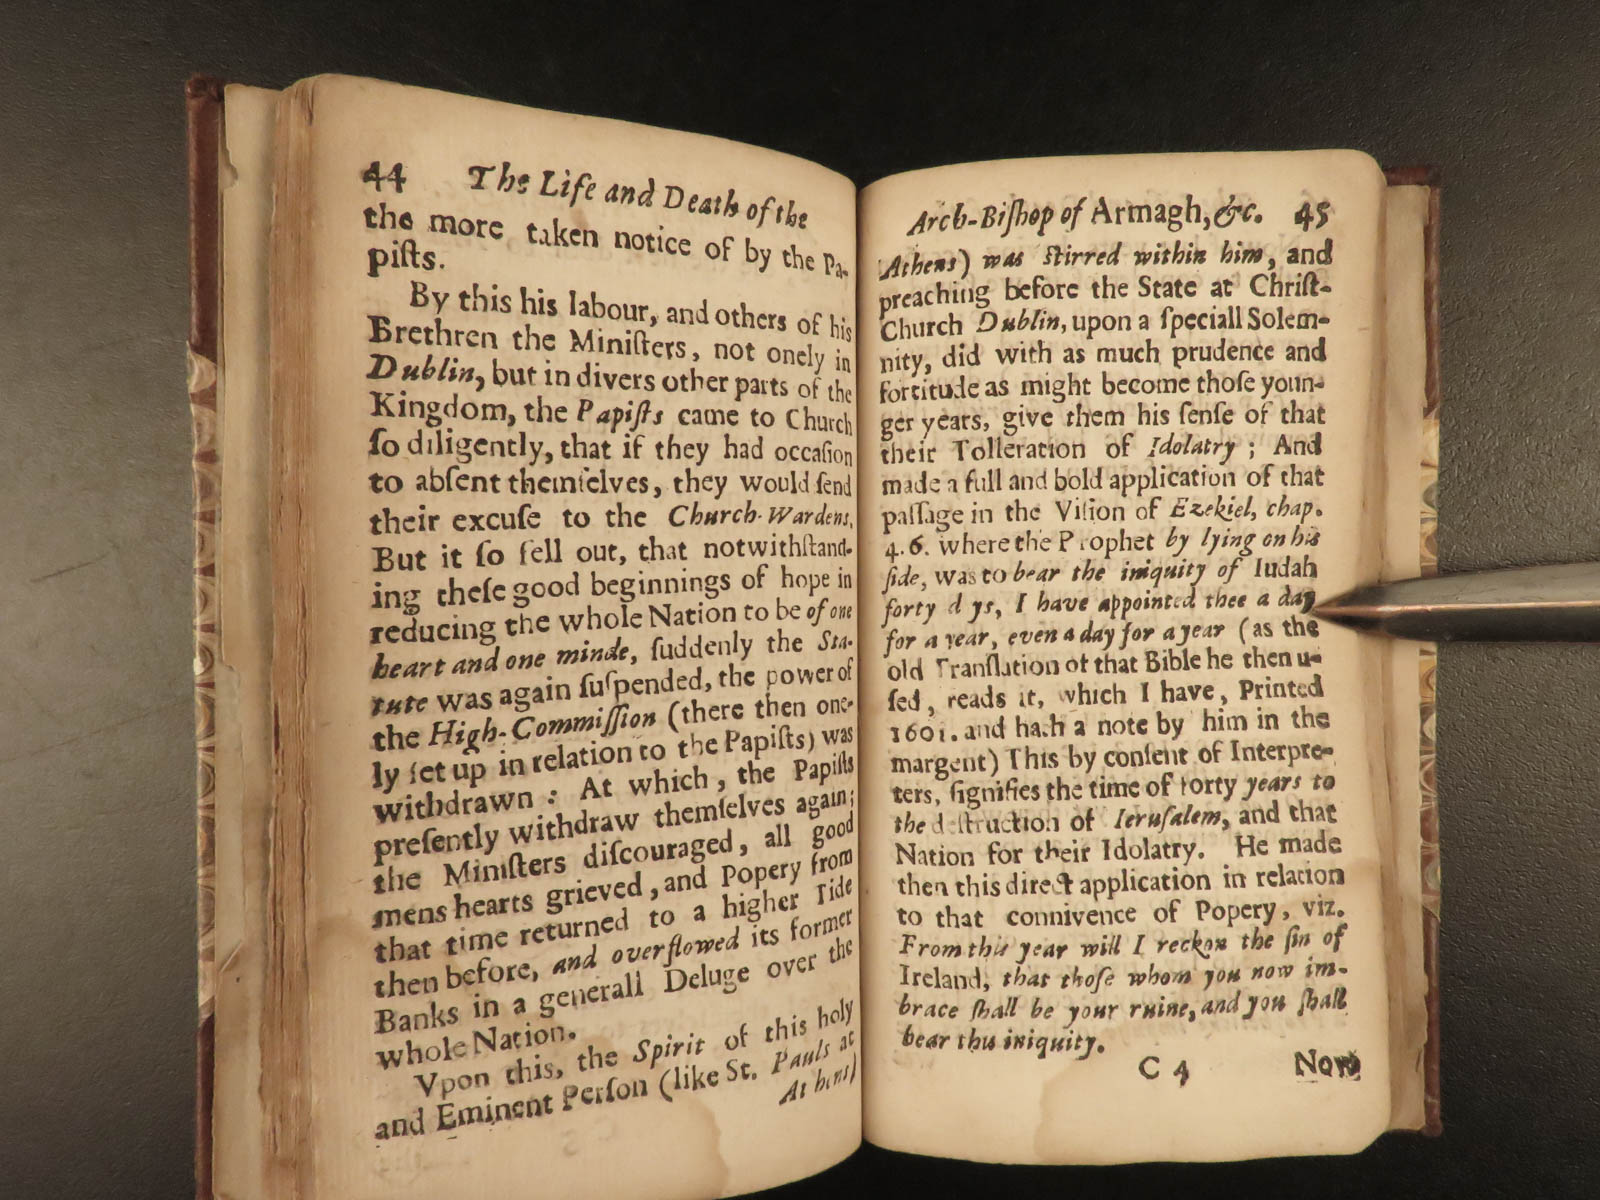 44 The Life and Death of the
the more taken notice of by the Pa-
piſts.
By this his labour, and others of his
Brethren the Miniſters, not onely in
Dublin, but in divers other parts of the
Kingdom, the Papiſts came to Church
ſo diligently, that if they had occaſion
to abſent themſelves, they would ſend
their excuſe to the Church-Wardens.
But it ſo fell out, that notwithſtand-
ing theſe good beginnings of hope in
reducing the whole Nation to be of one
heart and one minde, ſuddenly the Sta-
tute was again ſuſpended, the power of
the High-Commiſſion (there then one-
ly ſet up in relation to the Papiſts) was
withdrawn: At which, the Papiſts
preſently withdraw themſelves again;
the Miniſters diſcouraged, all good
mens hearts grieved, and Popery from
that time returned to a higher Tide
then before, and overflowed its former
Banks in a generall Deluge over the
whole Nation.
Vpon this, the Spirit of this holy
and Eminent Perſon (like St. Pauls at
Athens)
Arch-Biſhop of Armagh, &c. 45
Athens) was ſtirred within him, and
preaching before the State at Chriſt-
Church Dublin, upon a ſpeciall Solem-
nity, did with as much prudence and
fortitude as might become thoſe youn-
ger years, give them his ſenſe of that
their Tolleration of Idolatry; And
made a full and bold application of that
paſſage in the Viſion of Ezekiel, chap.
4.6. where the Prophet by lying on his
ſide, was to bear the iniquity of Iudah
forty d ys, I have appointed thee a day
for a year, even a day for a year (as the
old Tranſlation of that Bible he then u-
ſed, reads it, which I have, Printed
1601. and hath a note by him in the
margent) This by conſent of Interpre-
ters, ſignifies the time of forty years to
the deſtruction of Ieruſalem, and that
Nation for their Idolatry. He made
then this direct application in relation
to that connivence of Popery, viz.
From this year will I reckon the ſin of
Ireland, that thoſe whom you now im-
brace ſhall be your ruine, and you ſhall
bear this iniquity.
C 4 Now